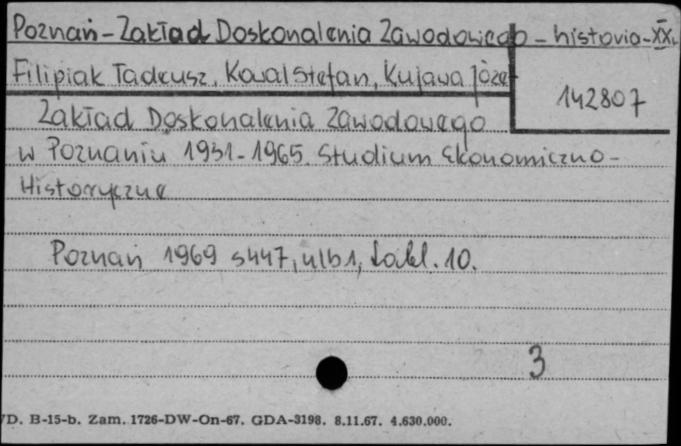 Poznań-Zakład Doskonalenia Zawodowego - historia-XX w.
Filipiak Tadeusz, Kowal Stefan, Kujawa Józef
142807
Zakład Doskonalenia Zawodowego
w Poznaniu 1931-1965. Studium Ekonomiczno-
Historyczne
Poznań 1969 s447, ulb1, tabl. 10.
3
D. B-15-b. Zam. 1726-DW-On-67. GDA-3198. 8.11.67. 4.630.000.